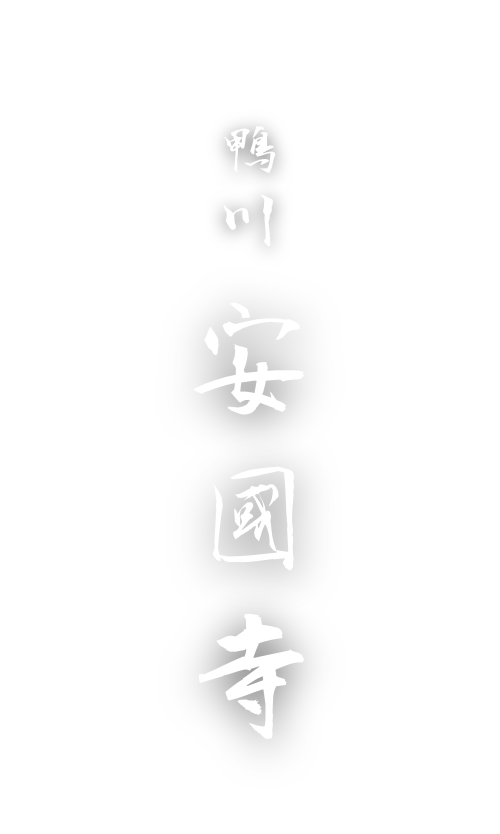 鴨川
安國寺